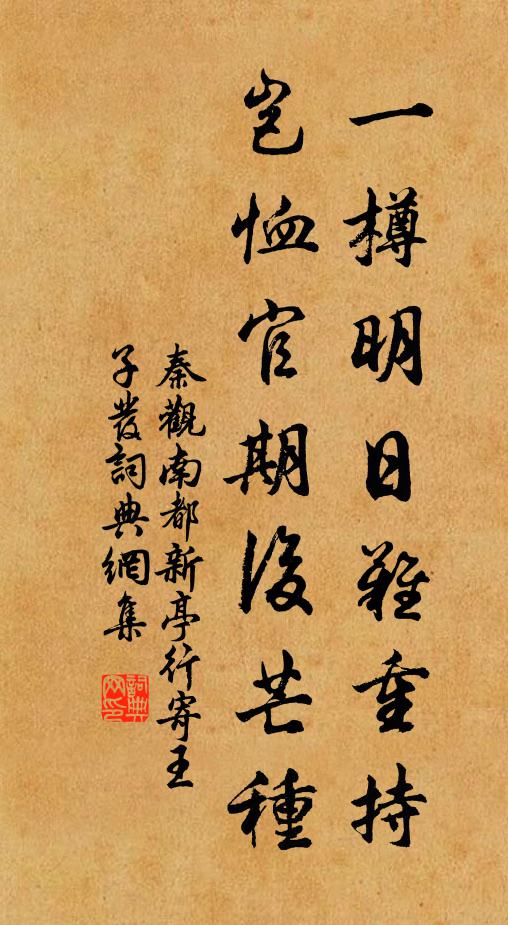 一樽明日難重持
豈恤官期後芒種
秦觀南都新亭行寄王
子發詞典網集
詞典網印